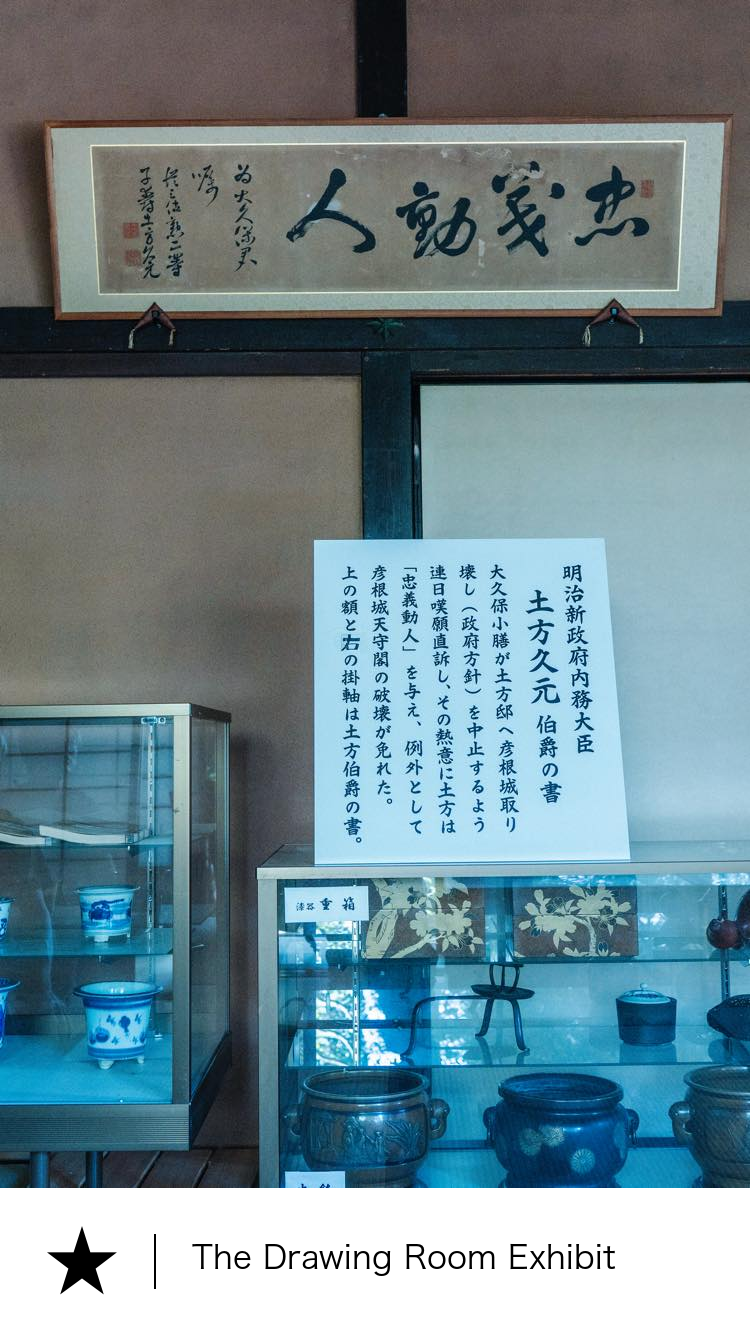 忠義動人
為大久保君
嘱
従三位勲二等
子爵土方久元
明治新政府内務大臣
土方久元 伯爵の書
大久保小膳が土方邸へ彦根城取り
壊し（政府方針）を中止するよう
連日嘆願直訴し、その熱意に土方は
「忠義動人」を与え、例外として
彦根城天守閣の破壊が免れた。
上の額と右の掛軸は土方伯爵の書。
漆器 重箱
The Drawing Room Exhibit